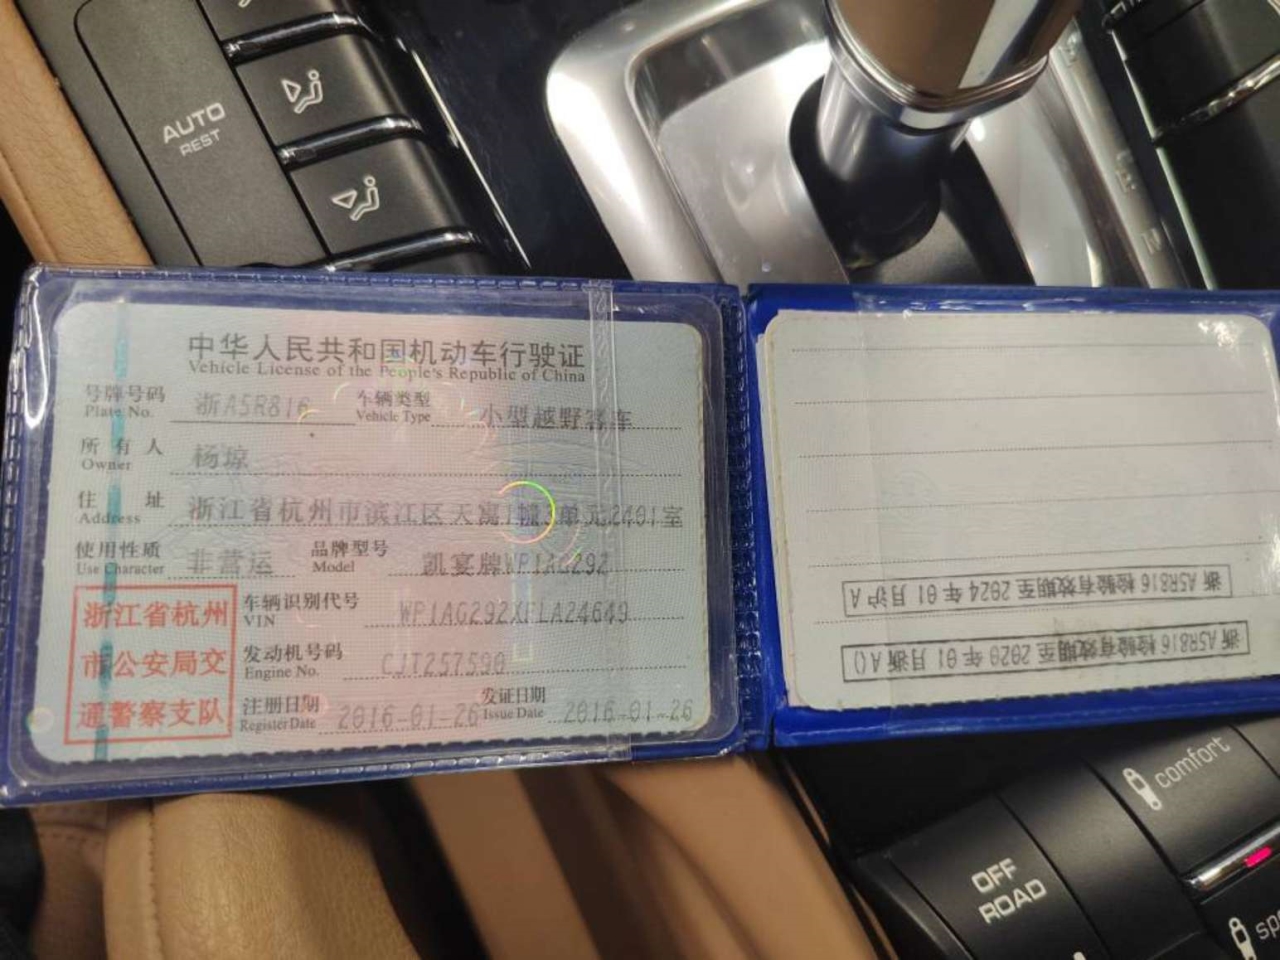 AUTO
REST
中华人民共和国机动车行驶证
Vehicle License of the People's Republic of China
号牌号码 浙A5R816 车辆类型 小型越野客车
Plate No. Vehicle Type
所有人 杨琼
Owner
住址 浙江省杭州市滨江区天寓1幢3单元2401室
Address
使用性质 非营运 品牌型号 凯宴牌WP1AG292
Use Character Model
浙江省杭州
市公安局交
通警察支队
车辆识别代号 WP1AG292XFLA24649
VIN
发动机号码 CJT257590
Engine No.
注册日期 2016-01-26 发证日期 2016-01-26
Register Date Issue Date
浙A5R816 检验有效期至 2024年01月沪A
浙A5R816 检验有效期至 2020年01月浙A()
comfort
OFF
ROAD
sp